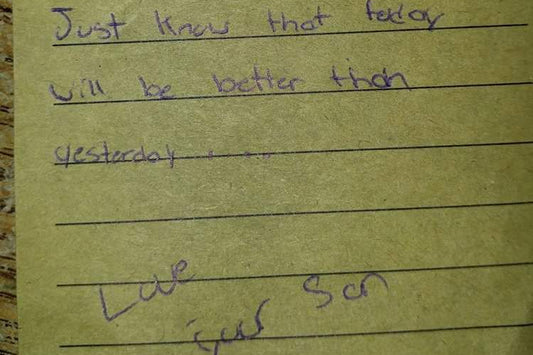 Just Know that today
will be better than
yesterday ....
Love
your Son